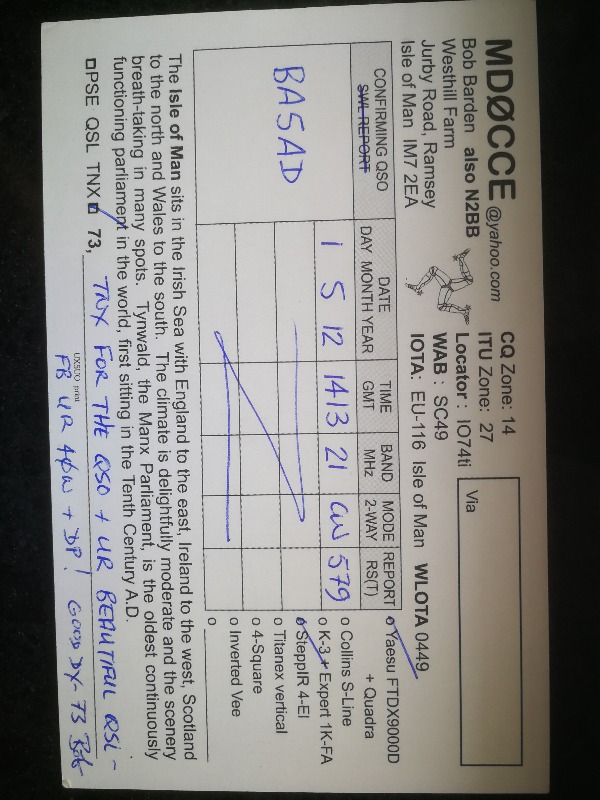 MDØCCE @yahoo.com
Bob Barden also N2BB
Westhill Farm
Jurby Road, Ramsey
Isle of Man IM7 2EA
CQ Zone: 14
ITU Zone: 27
Locator : IO74ti
WAB : SC49
IOTA: EU-116 Isle of Man WLOTA 0449
Via
CONFIRMING QSO
SWL REPORT
DATE
DAY MONTH YEAR
TIME
GMT
BAND
MHz
MODE
2-WAY
REPORT
RS(T)
BA5AD
1 5 12 1413 21 CW 579
o Yaesu FTDX9000D
+ Quadra
o Collins S-Line
o K-3 + Expert 1K-FA
o SteppIR 4-El
o Titanex vertical
o 4-Square
o Inverted Vee
o
The Isle of Man sits in the Irish Sea with England to the east, Ireland to the west, Scotland
to the north and Wales to the south. The climate is delightfully moderate and the scenery
breath-taking in many spots. Tynwald, the Manx Parliament, is the oldest continuously
functioning parliament in the world, first sitting in the Tenth Century A.D.
PSE QSL TNX 73, TNX FOR THE QSO + UR BEAUTIFUL QSL -
UX5UO print
FB UR 40W + DP! GOOD DX - 73 Bob